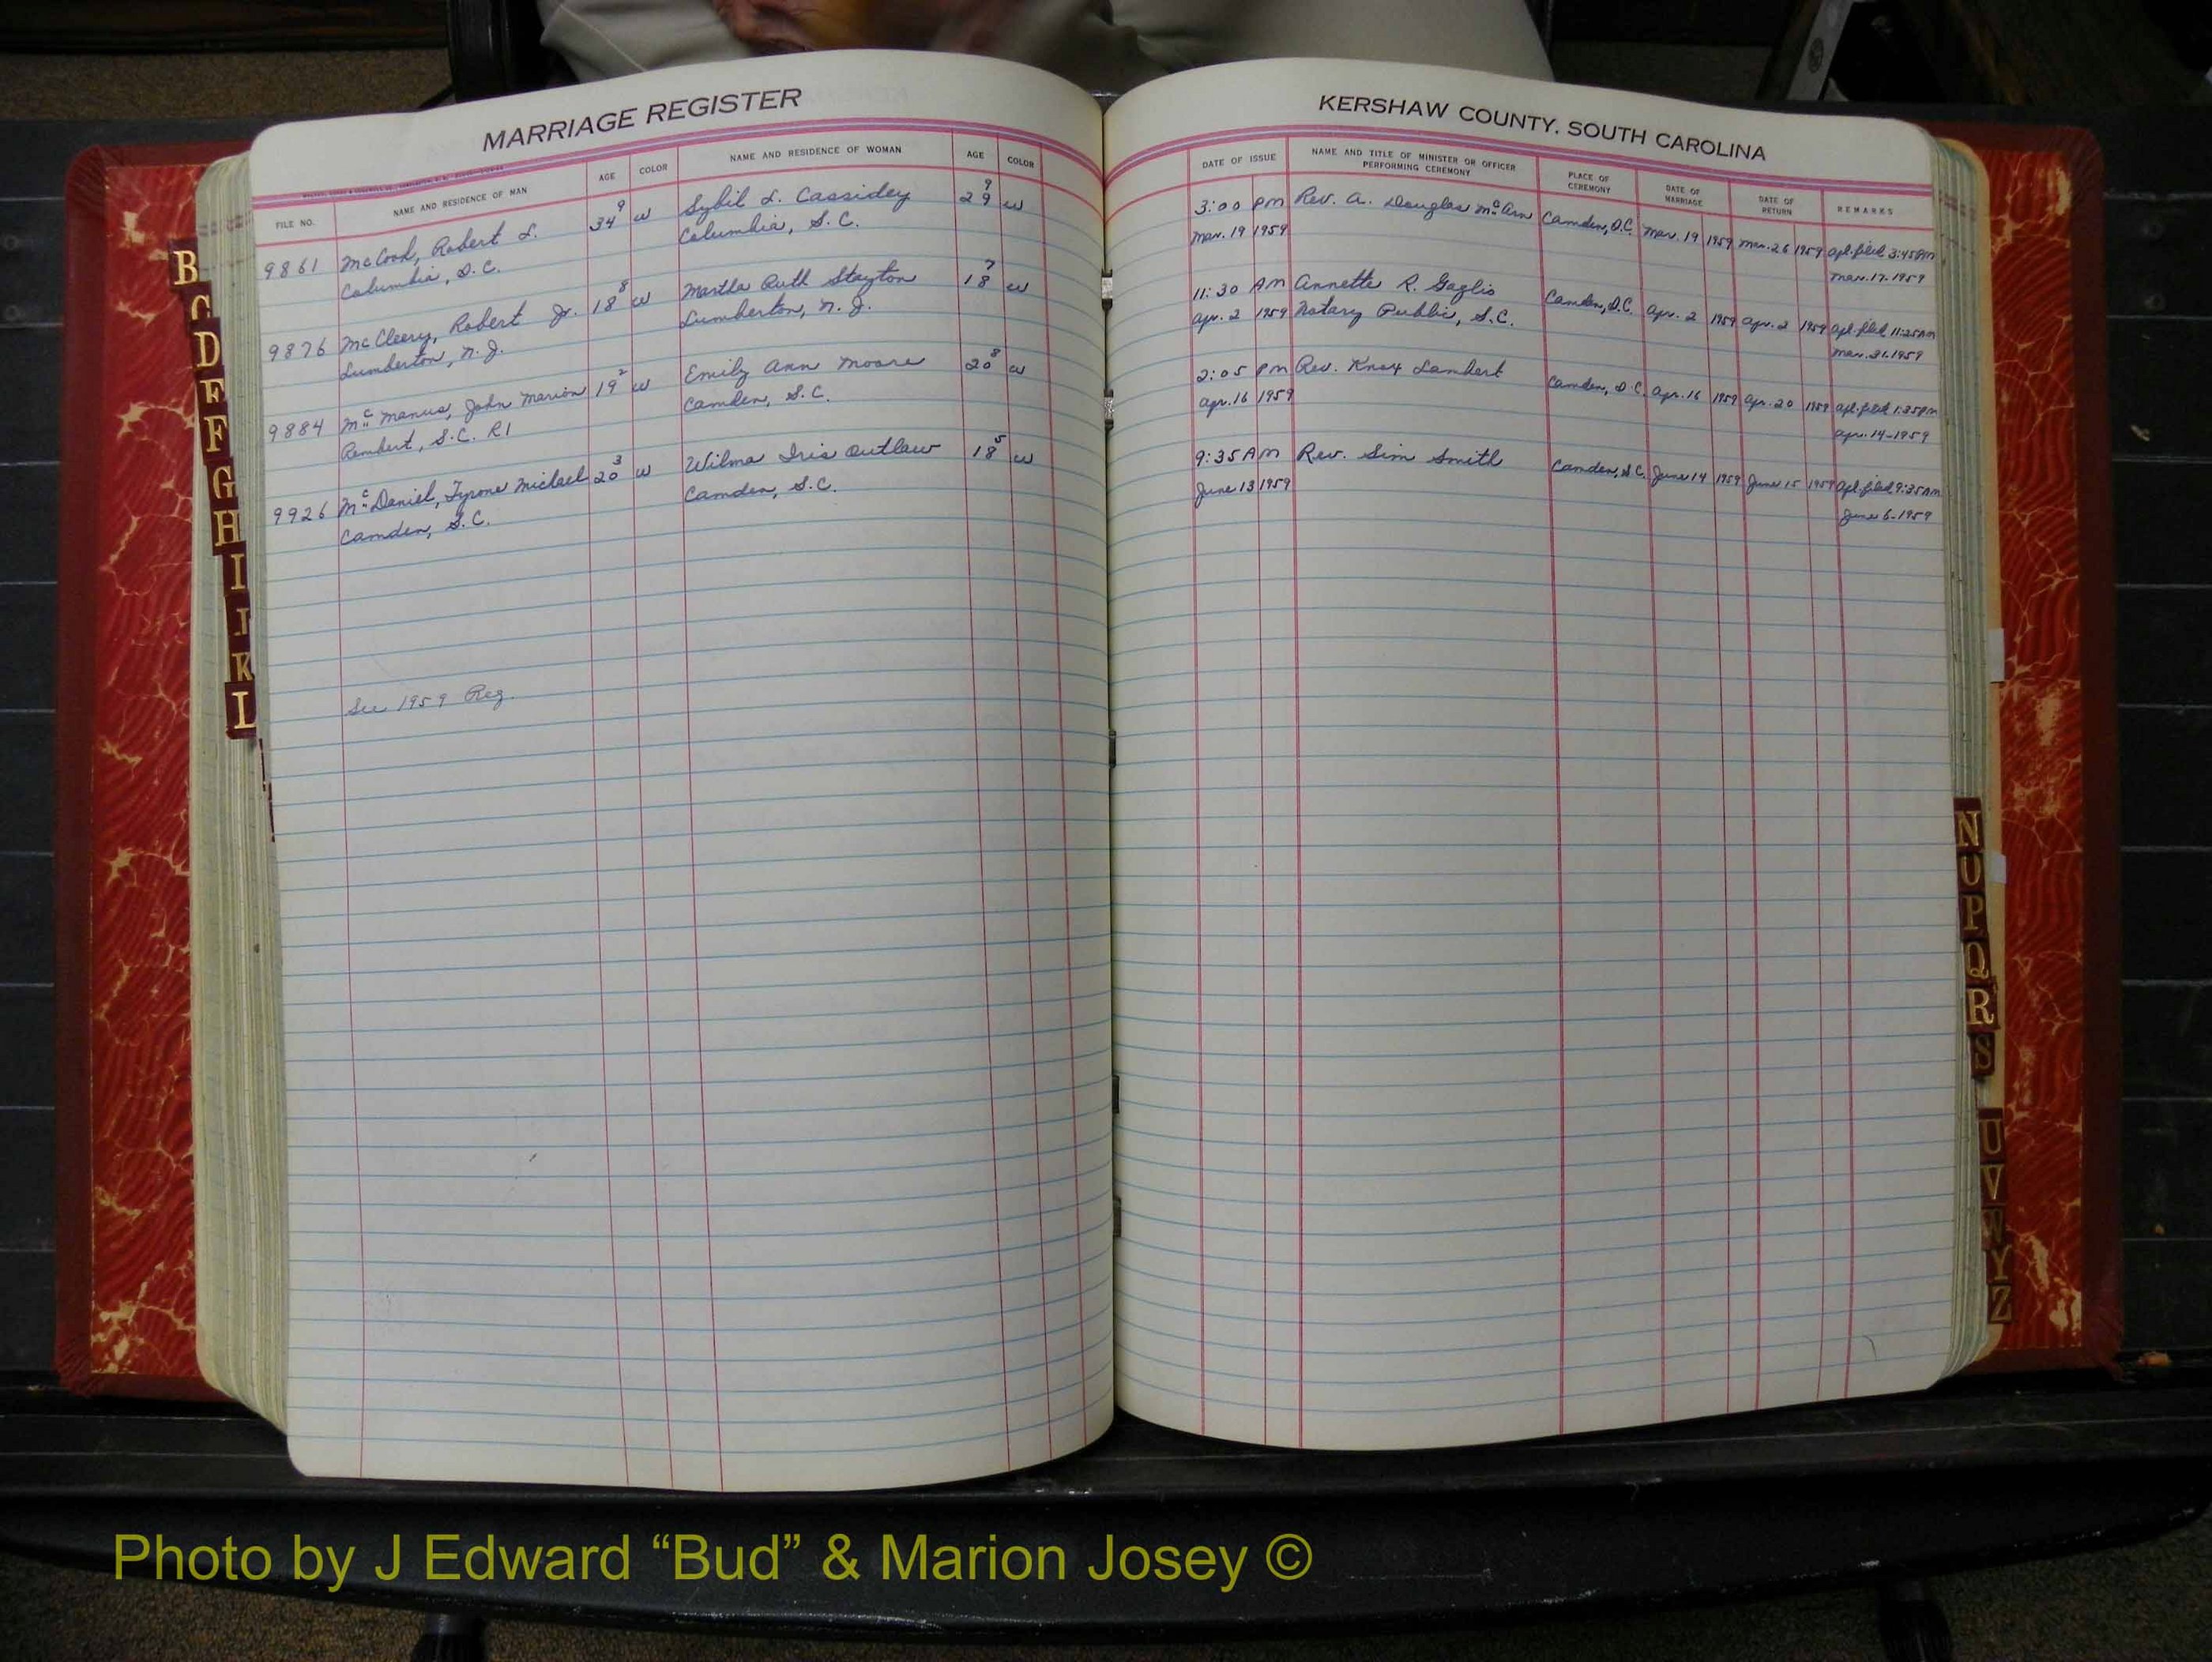 MARRIAGE REGISTER
FILE NO. NAME AND RESIDENCE OF MAN AGE COLOR NAME AND RESIDENCE OF WOMAN AGE COLOR
9861 McCook, Robert L. 34 9 w Sybil L. Cassidey 29 9 w
Columbia, S.C. Columbia, S.C.
9876 McCleery, Robert Jr. 18 8 w Martha Ruth Stayton 18 7 w
Lumberton, N.J. Lumberton, N.J.
9884 McManus, John Marion 19 2 w Emily Ann Moore 20 8 w
Rembert, S.C. R1 Camden, S.C.
9926 McDaniel, Tyrone Michael 20 3 w Wilma Iris Outlaw 18 5 w
Camden, S.C. Camden, S.C.
See 1959 Reg.
KERSHAW COUNTY, SOUTH CAROLINA
DATE OF ISSUE NAME AND TITLE OF MINISTER OR OFFICER PERFORMING CEREMONY PLACE OF CEREMONY DATE OF MARRIAGE DATE OF RETURN REMARKS
3:00 PM Rev. A. Douglas McArn Camden, S.C. Mar. 19 1959 Mar. 26 1959 Apl. filed 3:45 PM
Mar. 19 1959 Mar. 17-1959
11:30 AM Annette R. Gaglio Camden, S.C. Apr. 2 1959 Apr. 2 1959 Apl. filed 11:25 AM
Apr. 2 1959 Notary Public, S.C. Mar. 31-1959
2:05 PM Rev. Knox Lambert Camden, S.C. Apr. 16 1959 Apr. 20 1959 Apl. filed 1:35 PM
Apr. 16 1959 Apr. 14-1959
9:35 AM Rev. Sim Smith Camden, S.C. June 14 1959 June 15 1959 Apl. filed 9:35 AM
June 13 1959 June 6-1959
B
C
D
E
F
G
H
I
J
K
L
N
O
P
Q
R
S
U
V
W
Y
Z
Photo by J Edward “Bud” & Marion Josey ©